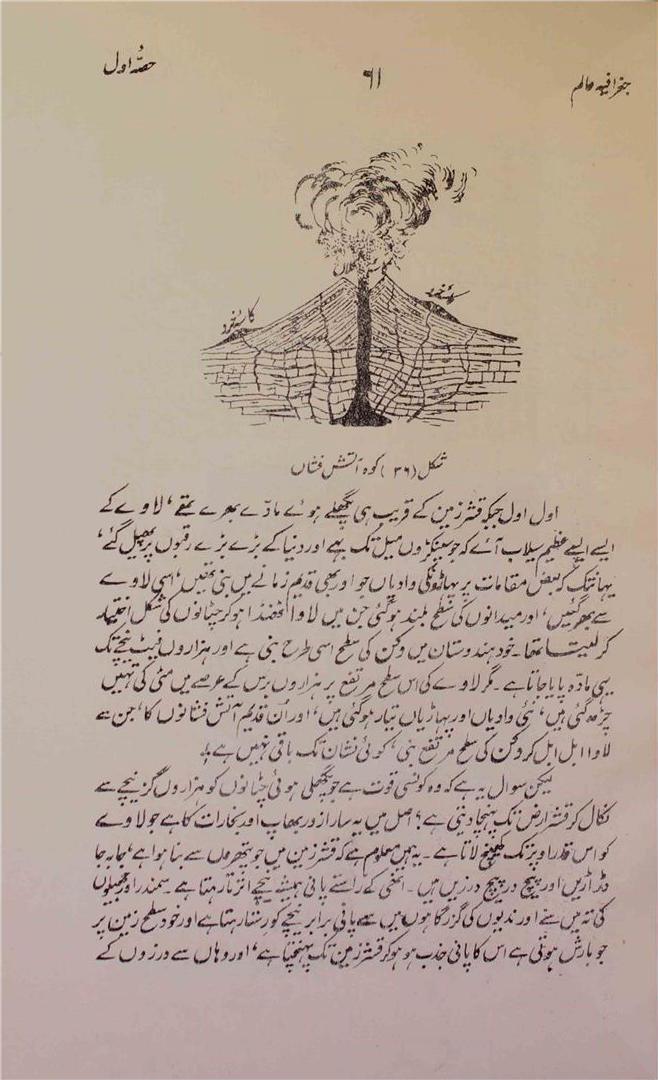 جغرافیہ عالم ۶۱ حصّہ اول
کلاں
کاسۂ خورد
کاسۂ خورد
شکل (۳۶) کوہ آتش فشاں
اول اول جبکہ قشر زمین کے قریب ہی پگھلے ہوئے مادّے بھرے تھے، لاوے کے
ایسے ایسے عظیم سیلاب آئے کہ جو سینکڑوں میل تک بہے اور دنیا کے بڑے بڑے رقبوں پر پھیل گئے،
یہانتک کہ بعض مقامات پر پہاڑونکی وادیاں جو اور بھی قدیم زمانے میں بنی تھیں، اسی لاوے
سے بھر گئیں، اور میدانوں کی سطح بلند ہوگئی جن میں لاوا ٹھنڈا ہوکر چٹانوں کی شکل اختیار
کرلیتا تھا۔ خود ہندوستان میں دکن کی سطح اسی طرح بنی ہے اور ہزاروں فیٹ نیچے تک
یہی مادّہ پایا جاتا ہے۔ مگر لاوے کی اس سطح مرتفع پر ہزاروں برس کے عرصے میں مٹی کی تہیں
چڑھ گئی ہیں، نئی وادیاں اور پہاڑیاں تیار ہوگئی ہیں، اور اُن قدیم آتش فشانوں کا، جن سے
لاوا ابل ابل کر دکن کی سطح مرتفع بنی، کوئی نشان تک باقی نہیں ہے۔
لیکن سوال یہ ہے کہ وہ کونسی قوت ہے جو پگھلی ہوئی چٹانوں کو ہزاروں گز نیچے سے
نکال کر قشر ارض تک پہنچا دیتی ہے؟ اصل میں یہ سارا زور بھاپ اور بخارات کا ہے جو لاوے
کو اس قدر اوپر تک کھینچ لاتا ہے۔ یہ ہمیں معلوم ہے کہ قشر زمین میں جو پتھروں سے بنا ہوا ہے، جا بہ جا
دڑاڑیں اور پیچ در پیچ درزیں ہیں۔ انھی کے راستے پانی ہمیشہ نیچے اترتا رہتا ہے۔ سمندر اور جھیلوں
کی تہ میں سے اور ندیوں کی گزرگاہوں میں سے پانی برابر نیچے کو رستا رہتا ہے اور خود سطح زمین پر
جو بارش ہوتی ہے اس کا پانی جذب ہو ہوکر قشر زمین تک پہنچتا ہے، اور وہاں سے درزوں کے